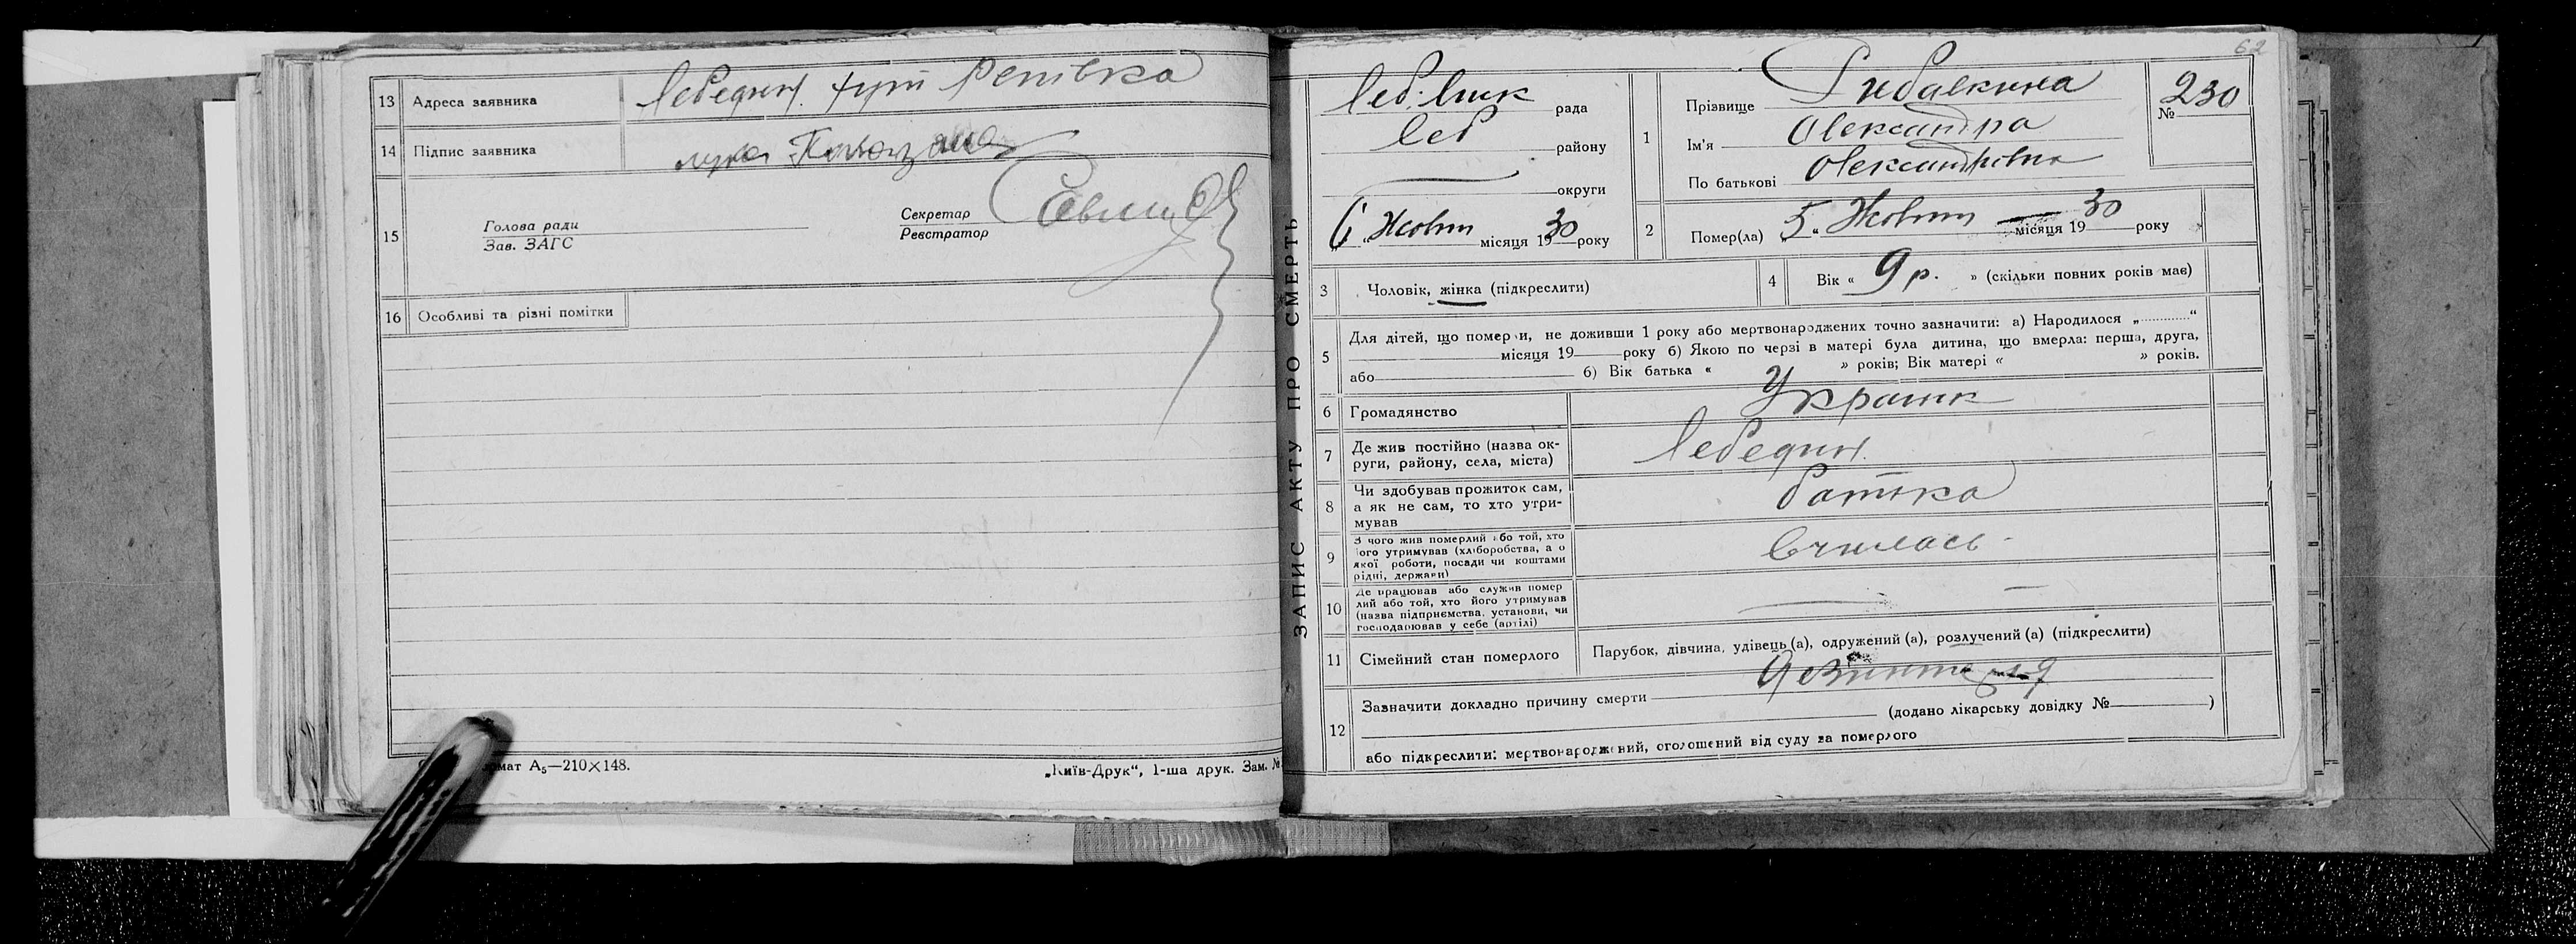 13 Адреса заявника Лебедин. хут Репівка
14 Підпис заявника лука
15 Голова ради
Зав. ЗАГС
Секретар
Реєстратор
16 Особливі та різні помітки
мат А5—210×148.
„Київ-Друк“, 1-ша друк. Зам. №
62
ЗАПИС АКТУ ПРО СМЕРТЬ
рада
Леб району
округи
6 Жовтн місяця 1930 року
1 Прізвище Рибалкина
Ім'я Олександра
По батькові Олександрівна
№ 230
2 Помер(ла) „5“ Жовтн — місяця 1930 року
3 Чоловік, жінка (підкреслити)
4 Вік « 9 р. » (скільки повних років має)
5 Для дітей, що померли, не доживши 1 року або мертвонароджених точно зазначити: а) Народилося „............“
місяця 19 року б) Якою по черзі в матері була дитина, що вмерла: перша, друга,
або б) Вік батька « » років; Вік матері « » років.
6 Громадянство Украінк
7 Де жив постійно (назва ок-
руги, району, села, міста) Лебедин.
8 Чи здобував прожиток сам,
а як не сам, то хто утри-
мував батька
9 З чого жив померлий або той, хто
його утримував (хліборобства, а о
якої роботи, посади чи коштами
рідні, держави) вчилась -
10 Де працював або служив помер
лий або той, хто його утримував
(назва підприємства, установи, чи
господарював у себе (артілі) —
11 Сімейний стан померлого Парубок, дівчина, удівець (а), одружений (а), розлучений (а) (підкреслити)
12 Зазначити докладно причину смерти
(додано лікарську довідку № )
або підкреслити: мертвонароджений, оголошений від суду за померлого